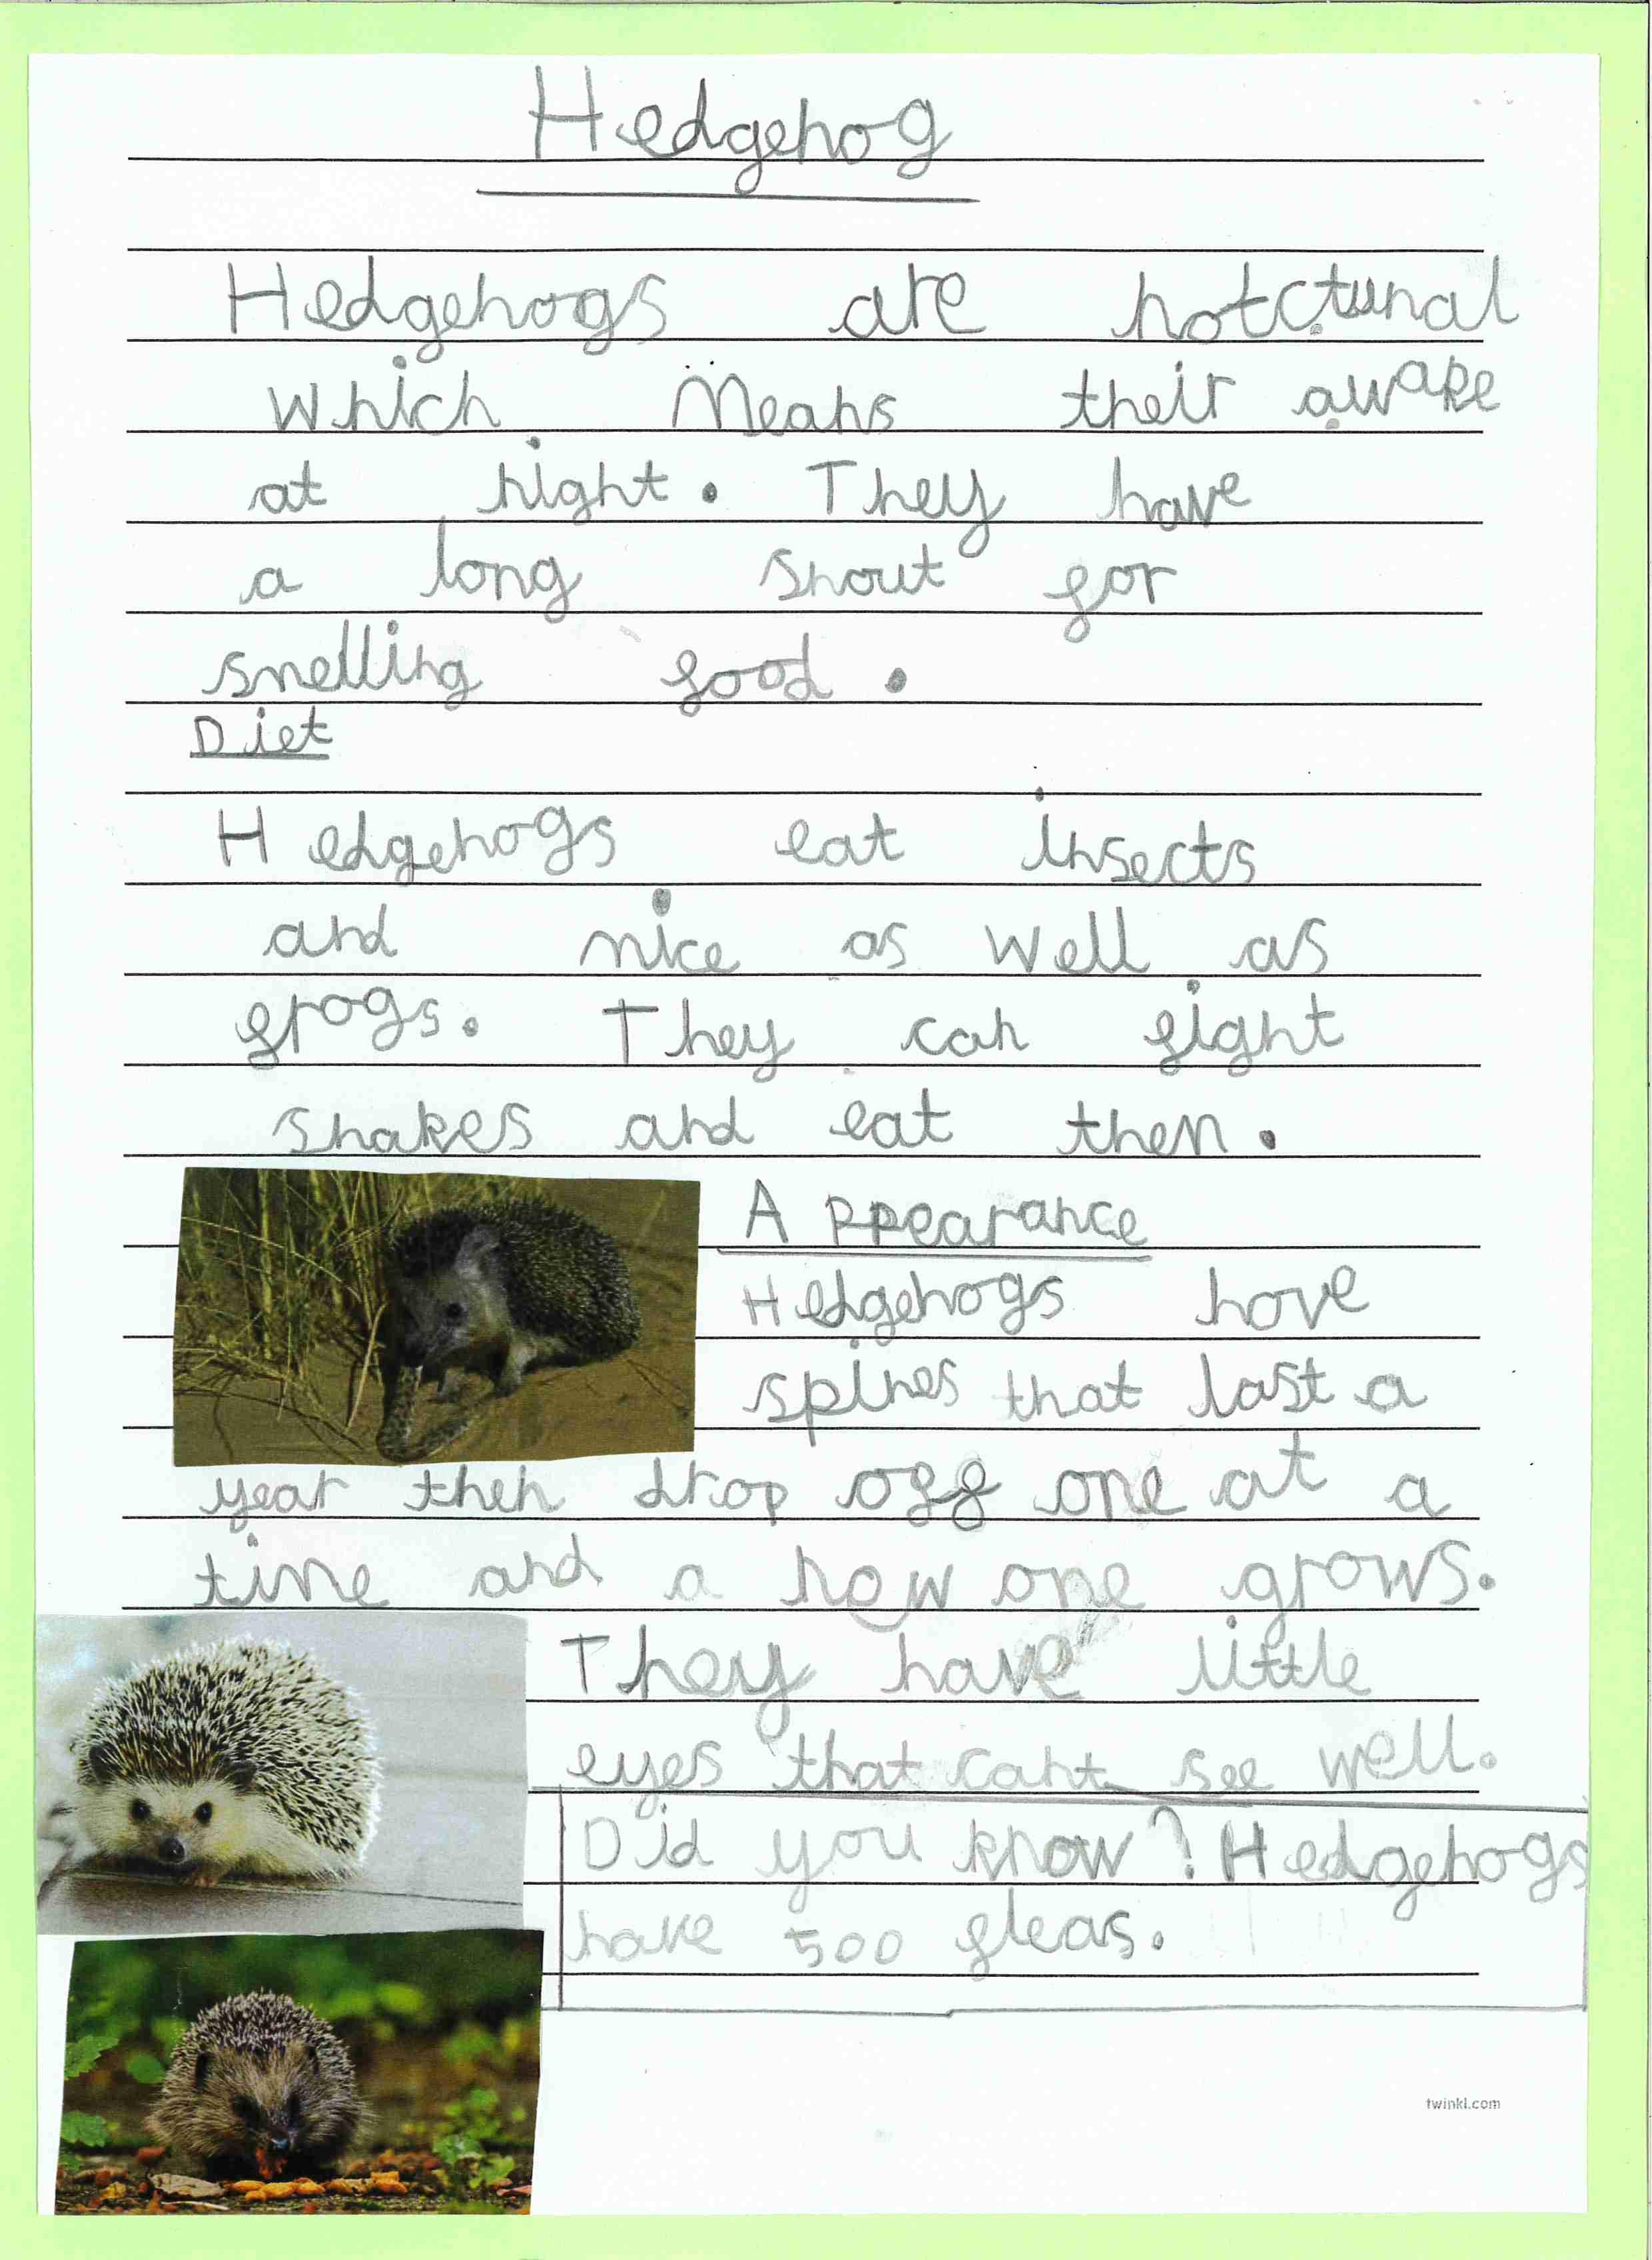 Hedgehog
Hedgehogs are notctunal
which means their awake
at night. They have
a long snout for
smelling food.
Diet
Hedgehogs eat insects
and mice as well as
frogs. They can fight
snakes and eat them.
Appearance
Hedgehogs have
spines that last a
year then drop off one at a
time and a new one grows.
They have little
eyes that cant see well.
Did you know? Hedgehogs
have 500 fleas.
twinkl.com